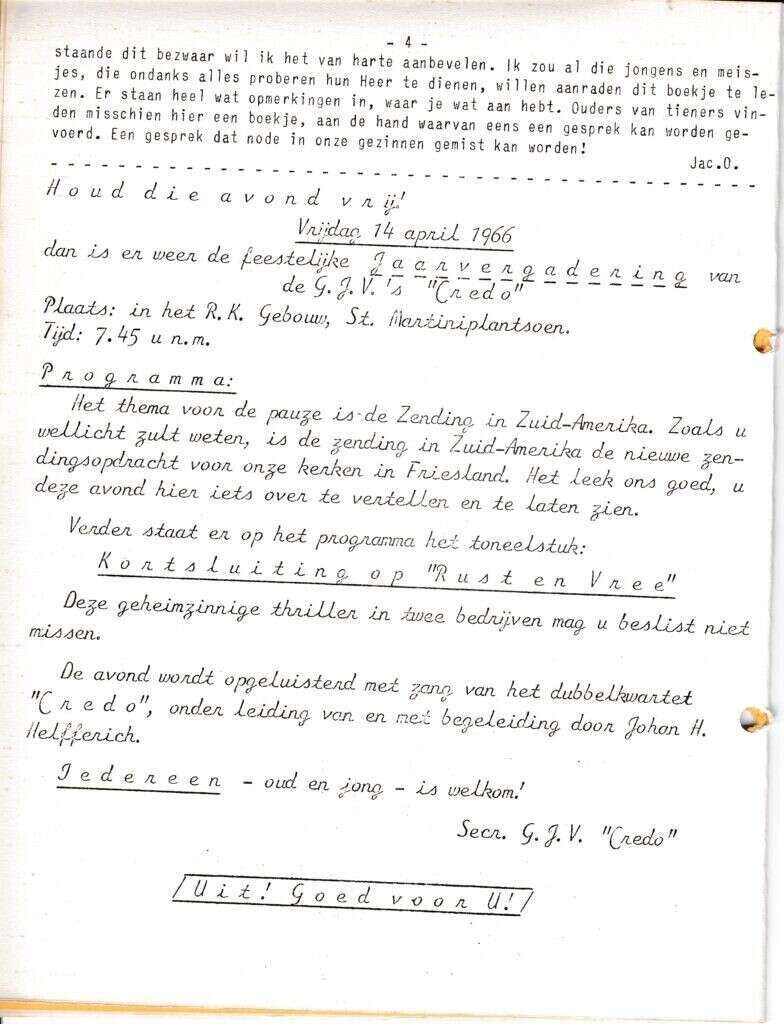 - 4 -
staande dit bezwaar wil ik het van harte aanbevelen. Ik zou al die jongens en meis-
jes, die ondanks alles proberen hun Heer te dienen, willen aanraden dit boekje te le-
zen. Er staan heel wat opmerkingen in, waar je wat aan hebt. Ouders van tieners vin-
den misschien hier een boekje, aan de hand waarvan eens een gesprek kan worden ge-
voerd. Een gesprek dat node in onze gezinnen gemist kan worden!
Jac.O.
Houd die avond vrij!
Vrijdag 14 april 1966
dan is er weer de feestelijke Jaarvergadering van
de G.J.V.'s "Credo"
Plaats: in het R.K. Gebouw, St. Martiniplantsoen.
Tijd: 7.45 u n.m.
Programma:
Het thema voor de pauze is de Zending in Zuid-Amerika. Zoals u
wellicht zult weten, is de zending in Zuid-Amerika de nieuwe zen-
dingsopdracht voor onze kerken in Friesland. Het leek ons goed, u
deze avond hier iets over te vertellen en te laten zien.
Verder staat er op het programma het toneelstuk:
Kortsluiting op "Rust en Vree"
Deze geheimzinnige thriller in twee bedrijven mag u beslist niet
missen.
De avond wordt opgeluisterd met zang van het dubbelkwartet
"Credo", onder leiding van en met begeleiding door Johan H.
Helfferich.
Iedereen - oud en jong - is welkom!
Secr. G.J.V. "Credo"
/Uit! Goed voor U!/